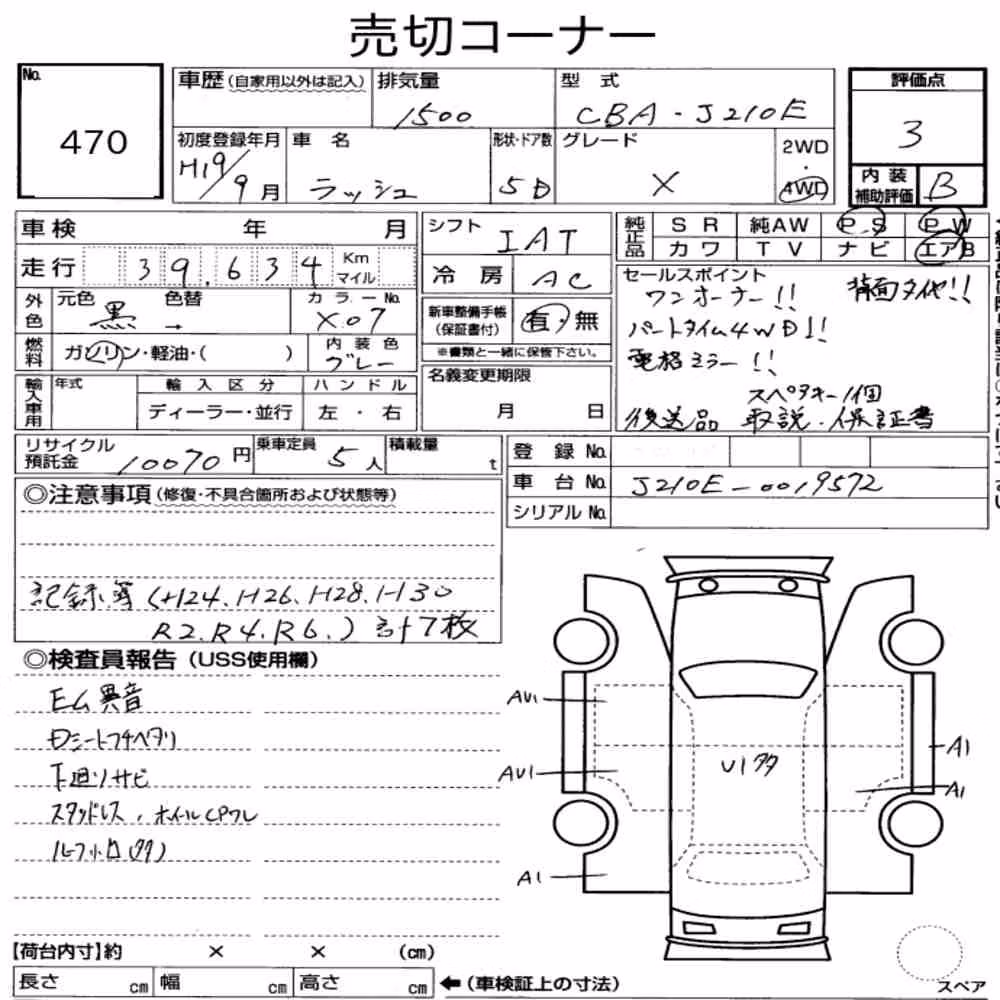 売切コーナー
No. 470
車歴(自家用以外は記入) 排気量 1500 型式 CBA-J210E 評価点 3
初度登録年月 H19/9月 車名 ラッシュ 形状・ドア数 5D グレード X 2WD・4WD 内装補助評価 B
車検 年 月 シフト IAT 純正品 SR 純AW PS PW
カワ TV ナビ エアB
走行 39,634 Km マイル 冷房 AC
セールスポイント
ワンオーナー!! 背面タイヤ!!
パートタイム4WD!!
電格ミラー!!
スペアキー1個
後送品 取説・保証書
外色 元色 黒 色替 → カラーNo. X07
新車整備手帳(保証書付) 有・無
※書類と一緒に保管下さい。
燃料 ガソリン・軽油・( ) 内装色 グレー
名義変更期限 月 日
輸入車用 年式 輸入区分 ハンドル
ディーラー・並行 左・右
リサイクル預託金 10070円 乗車定員 5人 積載量 t
登録No.
車台No. J210E-0019572
シリアルNo.
◎注意事項(修復・不具合箇所および状態等)
記録簿(H24.H26.H28.H30
R2.R4.R6.)計7枚
◎検査員報告(USS使用欄)
EG異音
Dシートフチヘタリ
下廻りサビ
スタッドレス,ホイールCPワレ
ルーフ小凹(多)
AU1
AU1
A1
U1多
A1
A1
【荷台内寸】約 × × (cm)
長さ cm 幅 cm 高さ cm ←(車検証上の寸法)
スペア